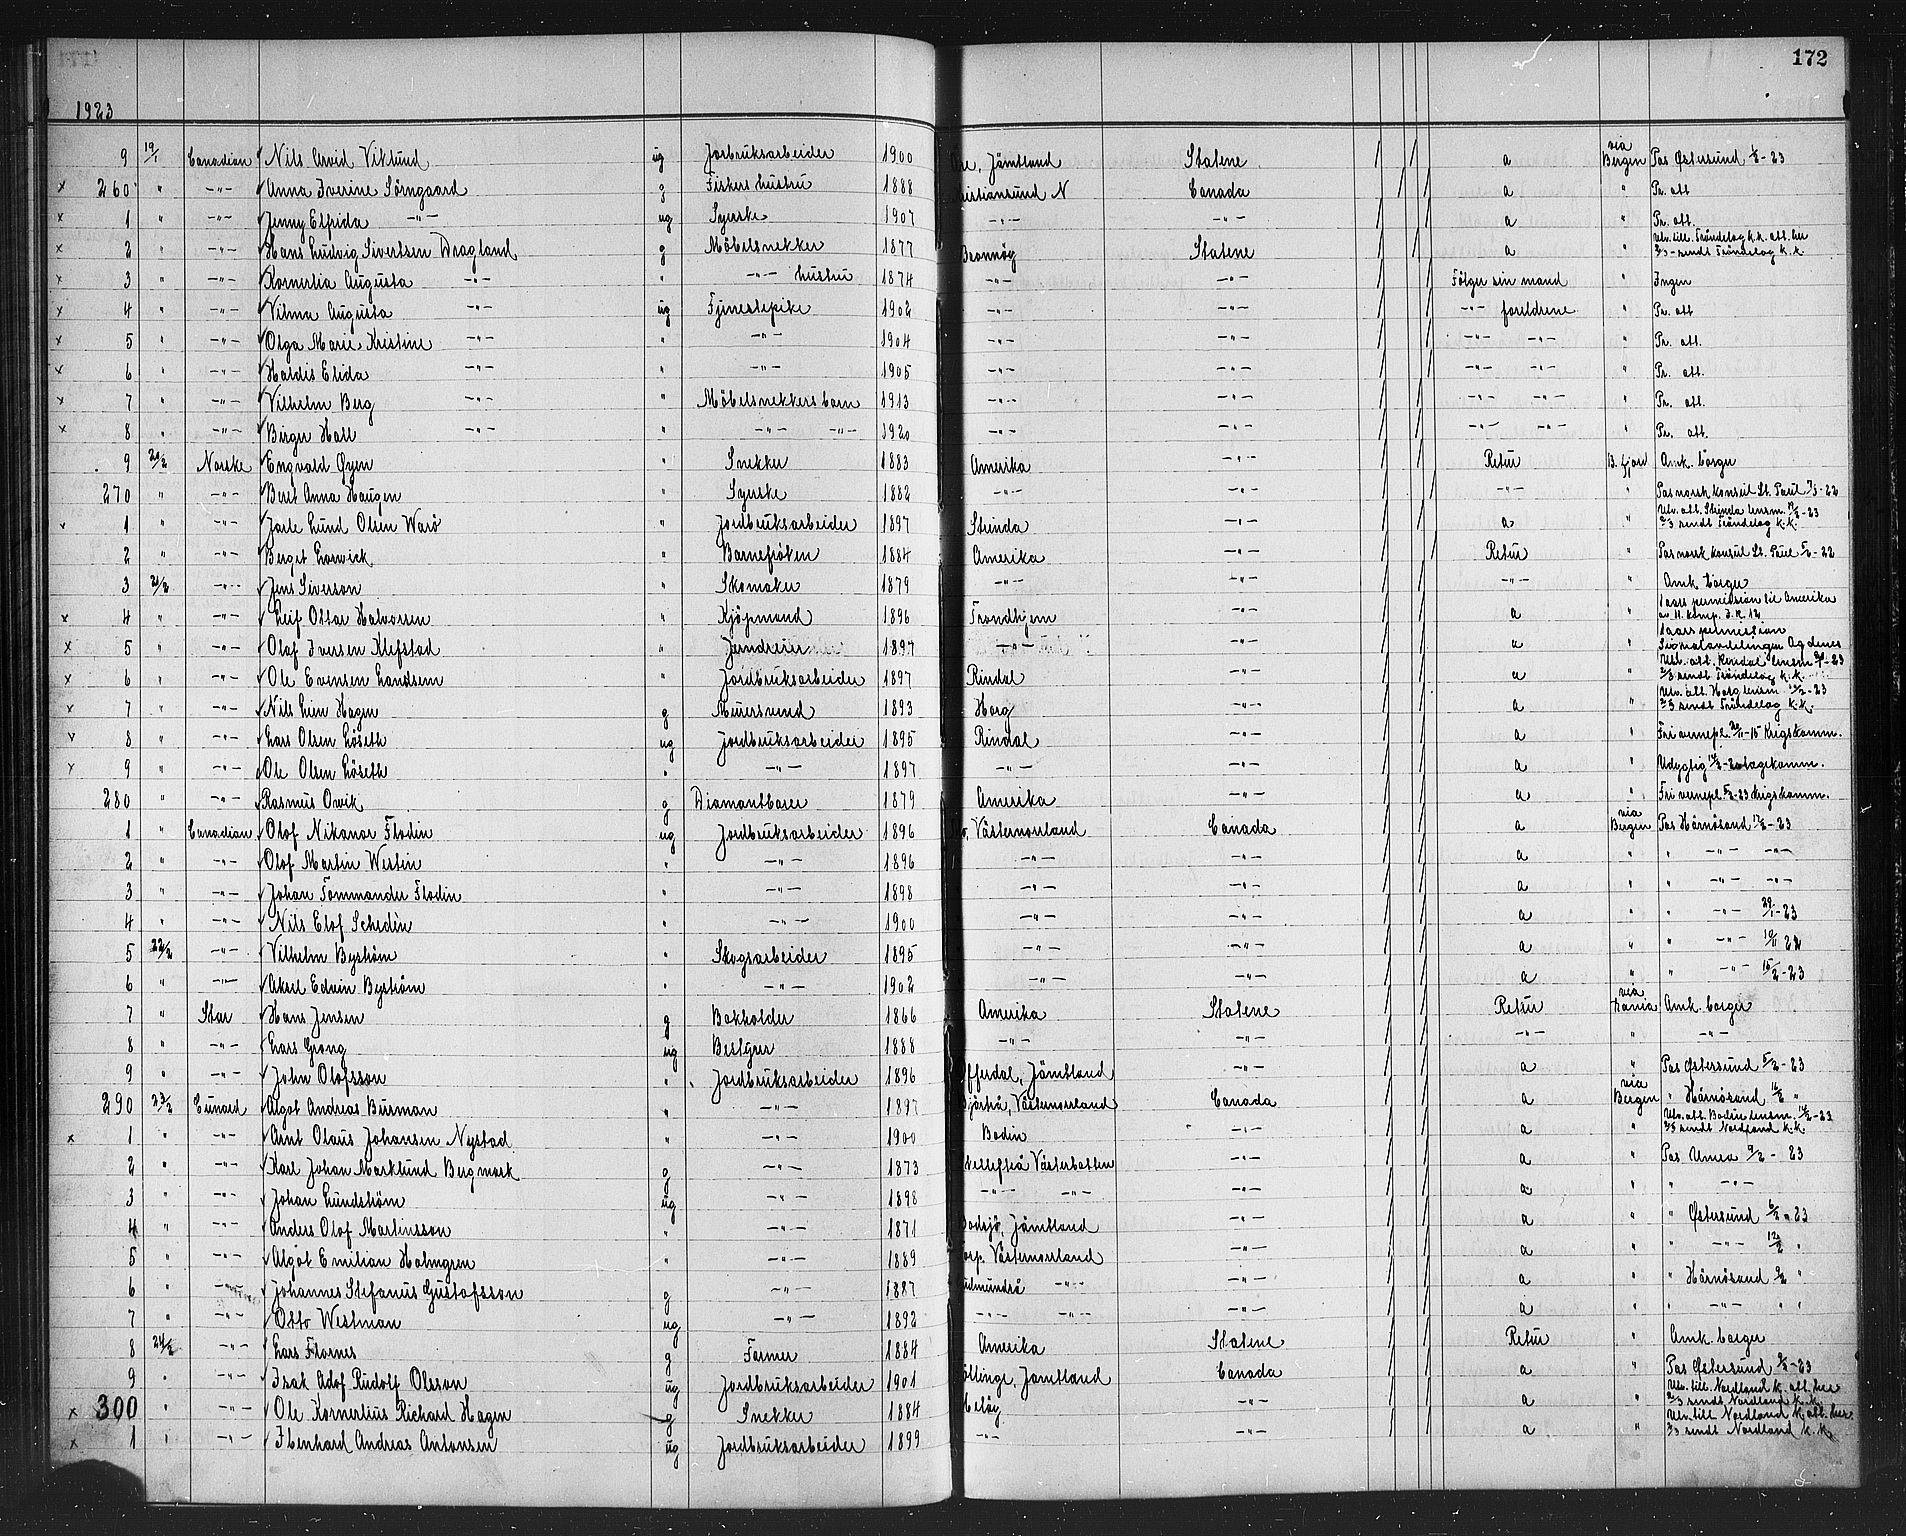 172
1923
9 19/1 Canadian Nils Arvid Viklund ug Jorbruksarbeider 1900 re, Jämtland Statene a via Bergen Pas Østersund 1/2-23
x 260 " -"- Anna Iverine Sörngaard g Fiskers hustru 1888 istiansund N Canada a " Pr. att.
x 1 " -"- Jenny Elfrida -"- ug Syerske 1907 -"- -"- a " Pr. att.
x 2 " -"- Hans Ludvig Sivertsen Dragland g Möbelsnekker 1877 Bronnöy Statene a " Utv. till. Tröndelag k.k. att. her 2/3 - sendt Tröndelag k.k.
x 3 " -"- Kornerlia Augusta -"- " -"- hustru 1874 -"- -"- Fölger sin mand " Ingen
x 4 " -"- Vilma Augusta -"- ug Tjenestepike 1902 -"- -"- -"- foreldrene " Pr. att
x 5 " -"- Olga Marie Kristine -"- " -"- 1904 -"- -"- -"- -"- " Pr. att.
x 6 " -"- Haldis Elida -"- " -"- 1905 -"- -"- -"- -"- " Pr. att.
x 7 " -"- Vilhelm Berg -"- " Möbelsnekkers barn 1913 -"- -"- -"- -"- " Pr. att.
x 8 " -"- Birger Hall -"- " -"- -"- 1920 -"- -"- -"- -"- " Pr. att.
9 20/2 Norske Engvald Öyen " Snekker 1883 Amerika -"- Retur B. fjord Amk. borger
270 " -"- Beret Anna Haugen " Syerske 1882 -"- -"- -"- " Pas norsk konsul St. Paul 7/3-22
1 " -"- Jarle Lund Olsen Warö " Jordbruksarbeider 1897 Strinda -"- a " Utv. att. Strinda lensm. 19/2-23 2/3 sendt Tröndelag k.k.
2 " -"- Berget Larwick " Barnefröken 1884 Amerika -"- Retur " Pas norsk konsul St. Paul 5/6-22
3 21/2 -"- Jens Siverson " Skomaker 1879 -"- -"- -"- " Amk. borger
x 4 " -"- Leif Ottar Halvorsen " Kjöpmand 1896 Trondhjem -"- a " 1 aars permission til Amerika av 11. komp. I.R. 12
x 5 " -"- Olaf Iversen Klefstad " Jerndreier 1897 -"- -"- a " 1 aars permission Signalavdelingen Agdenes
x 6 " -"- Ole Evensen Landsem " Jordbruksarbeider 1897 Rindal -"- a " Utv. att. Rindal lensm -23 2/3 sendt Tröndelag k.k.
x 7 " -"- Nils Lien Hagen g Muersvend 1893 Horg -"- a " Utv. att. Horg lensm 19/2-23 2/3 sendt Tröndelag k.k.
8 " -"- Lars Olsen Löseth ug Jordbruksarbeider 1895 Rindal -"- a " Fri vernepl. -15 Krigskomm.
9 " -"- Ole Olsen Löseth " -"- 1897 -"- -"- a " Udygtig 14/2-20 lagekomm.
280 " -"- Rasmus Owik g Diamantborer 1879 Amerika -"- a " Fri vernepl. 5/2-23 Krigskomm.
1 " Canadian Olof Nikanor Flodin ug Jordbruksarbeider 1896 o, Västernorrland Canada a via Bergen Pas Härnösand 17/2-23
2 " -"- Olof Martin Westin " -"- 1896 -"- -"- a " " -"- -"-
3 " -"- Johan Tommander Flodin " -"- 1898 -"- -"- a " " -"- -"-
4 " -"- Nils Elof Schedin " -"- 1900 -"- -"- a " " -"- 29/1-23
5 22/2 -"- Vilhelm Byström " Skogsarbeider 1895 -"- -"- a " " -"- 10/11 22
6 " -"- Aksel Edvin Byström " -"- 1902 -"- -"- a " " -"- 15/2-23
7 " Star Hans Jensen g Bokholder 1866 Amerika Statene Retur via Dania Amk. borger
8 " -"- Lars Grong ug Bestyrer 1888 -"- -"- -"- " -"-
9 " -"- John Olofsson " Jordbruksarbeider 1896 Offerdal, Jämtland -"- a " Pas Østersund 5/2-23
290 23/2 Cunard Algot Andreas Burman " -"- 1897 Bjärtrå, Västernorrland Canada a via Bergen " Härnösand 16/2 "
x 1 " -"- Arnt Olaus Johansen Nystad " -"- 1900 Bodin -"- a " Utv. att. Bodin lensm. 14/2-23 2/3 sendt Nordland k.k.
2 " -"- Karl Johan Marklund Bergmark g -"- 1873 kellefteå Västerbotten -"- a " Pas Umea 9/2 - 23
3 " -"- Johan Lundström ug -"- 1898 -"- -"- -"- a " " -"-
4 " -"- Anders Olof Martinsson " -"- 1871 Bodsjö, Jämtland -"- a " " Østersund 6/2 " 23
5 " -"- Algot Emilian Holmgren " -"- 1889 orp. Västernorrland -"- a " " -"- 12/2 "
6 " -"- Johannes Stefanus Gustafsson g -"- 1887 udmundrå -"- -"- a " " Härnösand 9/2 "
7 " -"- Otto Westman ug -"- 1892 -"- -"- -"- a " " -"- " "
8 24/2 -"- Lars Flornes g Farmer 1884 Amerika Statene Retur " Amk. borger
9 " -"- Isak Adof Rudolf Olsson ug Jordbruksarbeider 1901 öllinge, Jämtland Canada a " Pas Østersund 9/2-23
x 300 " -"- Ole Kornerlius Richard Hagen g Snekker 1884 Melöy -"- a " Utv. till. Nordland k. att. her 2/3 sendt Nordland k.k.
x 1 " -"- Ebenhard Andreas Antonsen ug Jordbruksarbeider 1899 -"- -"- a " Utv. till Nordland k. att. her. 2/3 sendt Nordland k.k.